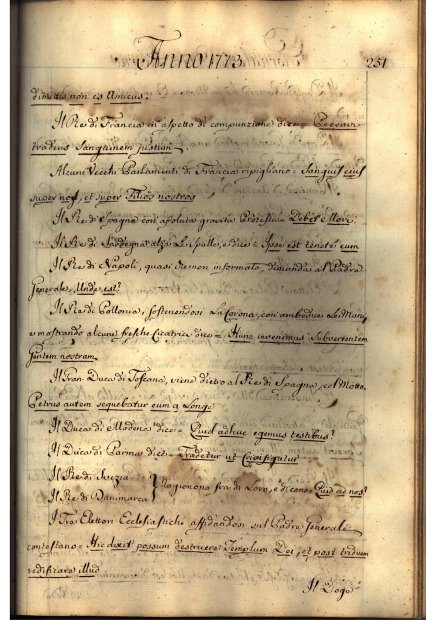 Anno 1773. 251
dimittis non es Amicus.
Il Re di Francia in aspetto di compunzione dice = Peccavi
tradens Sanguinem justum
Alcuni Vecchi Parlamenti di Francia ripigliano = Sanguis ejus
super nos, et super Filios nostros
Il Re di Spagna con assoluta gravità Protesta = Debet Mori
Il Re di Sardegna alza le Spalle, e dice = Ipsi est tenete eum
Il Re di Napoli, quasi se non informato, dimanda al Padre
Generale, Unde es?
Il Re di Pollonia, sostenendosi la Corona, con ambedue le Mani
e mostrando alcune fresche Cicatrici dice = Hunc invenimus Subvertentem
Gentem nostram
Il Gran Duca di Toscana, viene dietro al Re di Spagna, col Motto
Petrus autem sequebatur eum a Longe
Il Duca di Modena dice = Quid adhuc egemus testibus?
Il Duca di Parma dice = Tradetur ut Crucifigatur
Il Re di Svezia
Il Re di Danimarca
ragionono fra di Loro, e dicono Quid ad nos?
I Tre Elettori Ecclesiastichi affidandosi sul Padre Generale
contestano = Hic dixit possum destruere Templum Dei, et post triduum
redificare illud
Il Doge